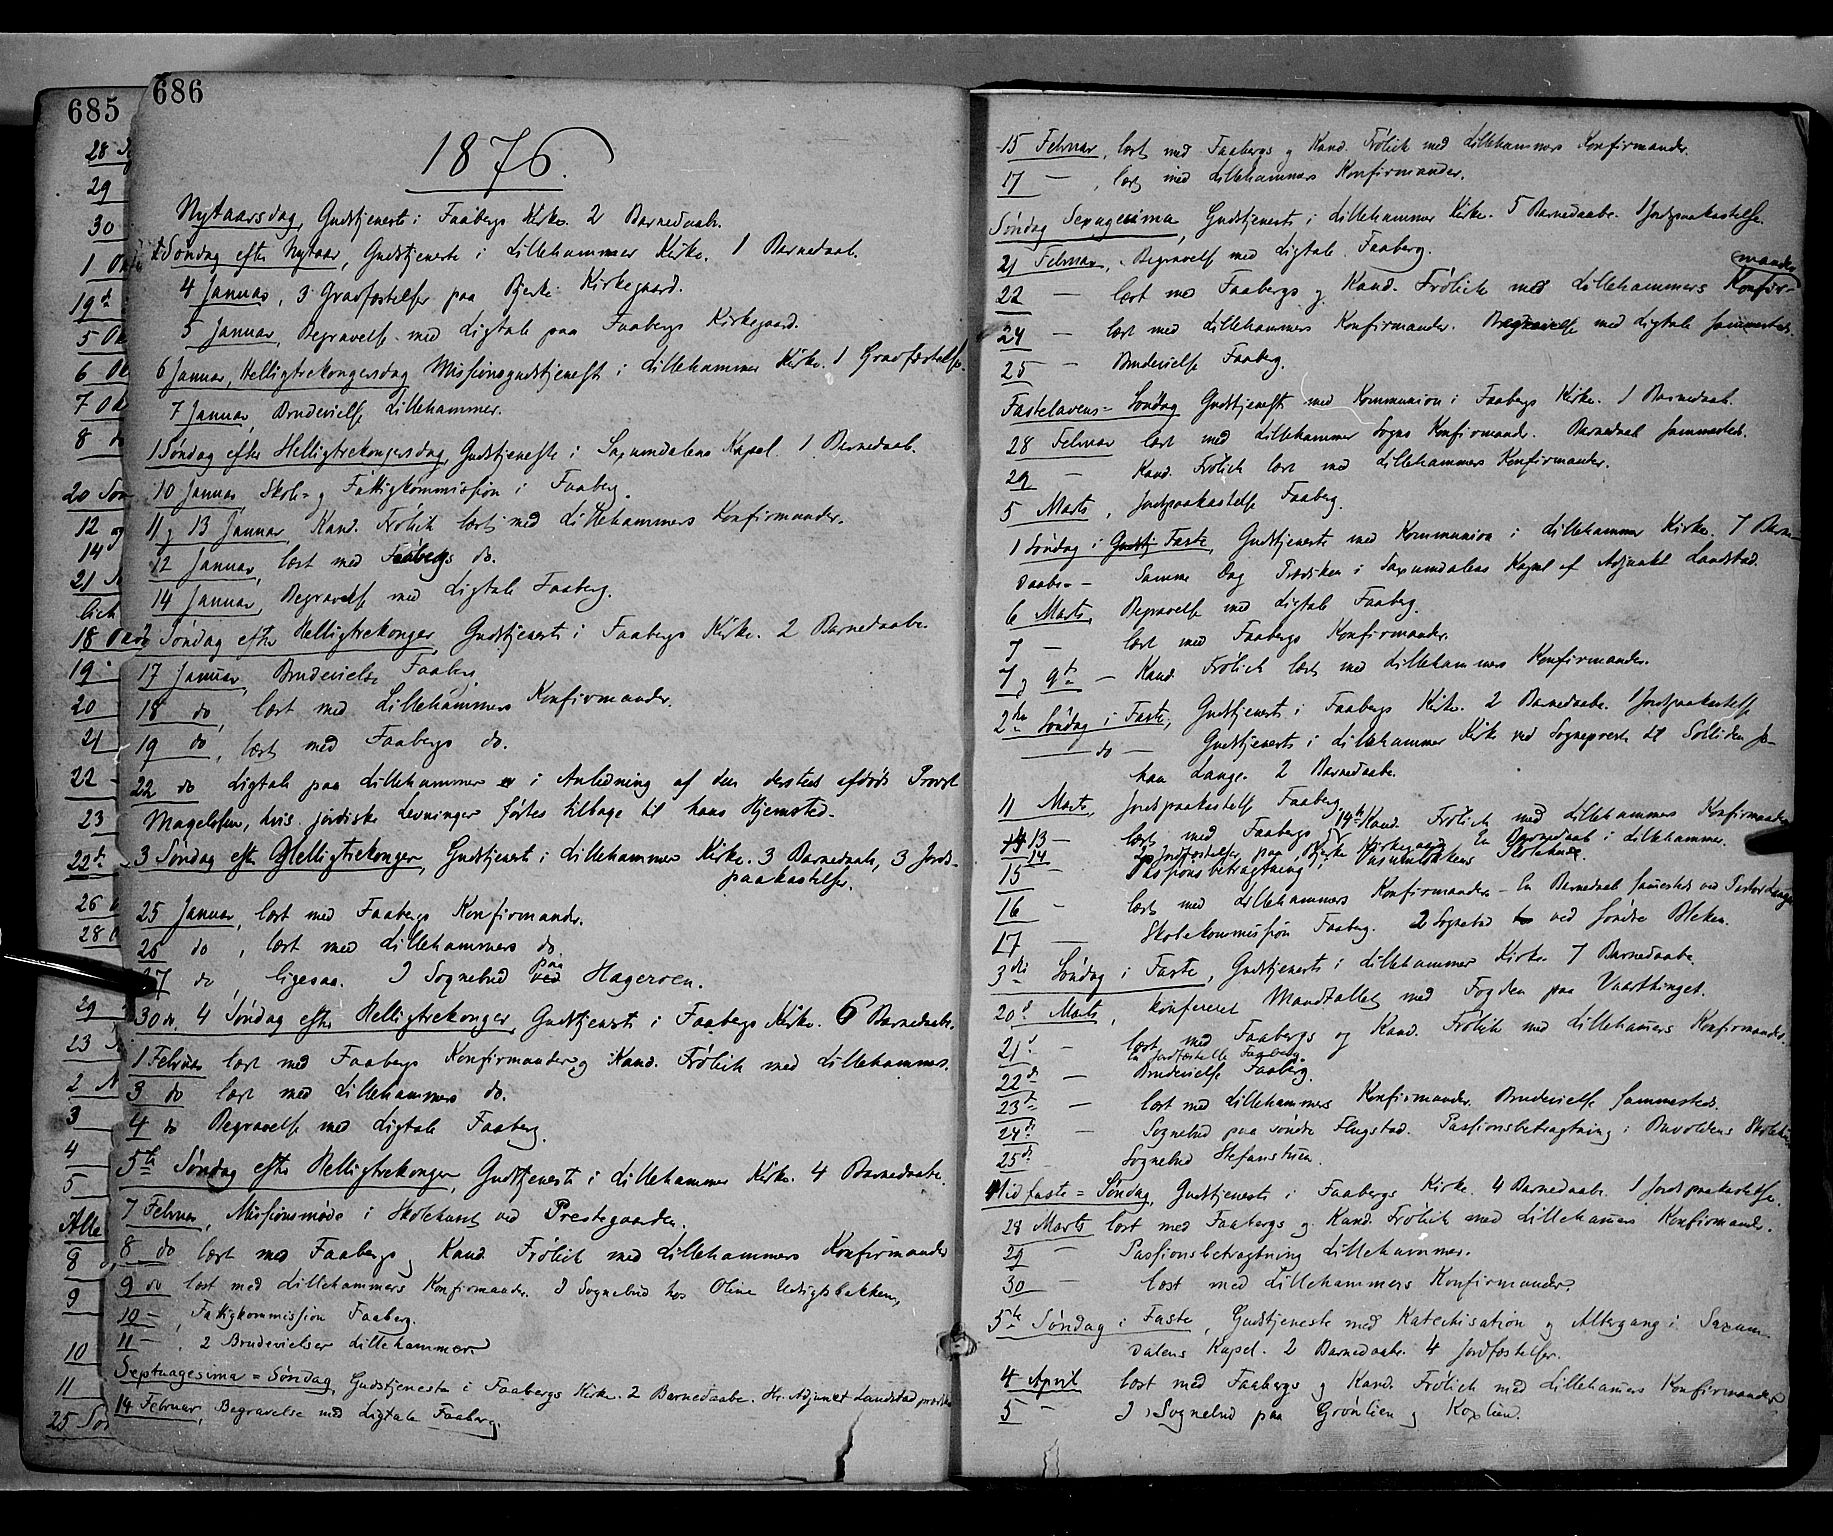 685
686
1876.
Nytaarsdag, Gudstjeneste i Faabergs Kirke. 2 Barnedaab.
Søndag efter Nytaar, Gudstjeneste i Lillehammer Kirke. 1 Barnedaab.
4 Januar, 3 Gravfæstelser paa Bjerke Kirkegaard.
5 Januar, Begravelse med Ligtale paa Faabergs Kirkegaard.
6 Januar, Helligtrekongersdag Missionsgudstjeneste i Lillehammer Kirke. 1 Gravfæstelse.
7 Januar, Brudevielse Lillehammer.
1 Søndag efter Helligtrekongersdag, Gudstjeneste i Saxumdalens Kapel. 1 Barnedaab.
10 Januar, Skole- og Fattigkommission i Faaberg.
11 og 13 Januar, Kand. Frølich læst med Lillehammers Konfirmander.
12 Januar, læst med Faabergs do.
14 Januar, Begravelse med Ligtale Faaberg.
Søndag efter Helligtrekonger, Gudstjeneste i Faabergs Kirke. 2 Barnedaab.
17 Januar, Brudevielse Faaberg.
18 do, læst med Lillehammers Konfirmander.
19 do, læst med Faabergs do.
22 do Ligtale paa Lillehammer i Anledning af den dersteds afdøde Provst
Magelssen, hvis jordiske Levninger førtes tilbage til hans Hjemsted.
3 Søndag efter Helligtrekonger, Gudstjeneste i Lillehammer Kirke. 3 Barnedaab, 3 Jords-
paakastelser.
25 Januar, læst med Faabergs Konfirmander.
26 do, læst med Lillehammers do.
27 do, ligesaa. I Sognebud paa Hageroen.
30 do. 4 Søndag efter Helligtrekonger, Gudstjeneste i Faabergs Kirke. 6 Barnedaab.
1 Februar læst med Faabergs Konfirmander og Kand. Frølich med Lillehammers.
3 do læst med Lillehammers do.
4 do Begravelse med Ligtale Faaberg.
5te Søndag efter Helligtrekonger, Gudstjeneste i Lillehammer Kirke. 4 Barnedaab.
7 Februar, Missionsmøde i Skolehuset ved Prestegaarden.
8 do læst med Faabergs og Kand. Frølich med Lillehammers Konfirmander
9 do læst med Lillehammers Konfirmander. I Sognebud hos Oline
10 –, Fattigkommission Faaberg.
11 –, 2 Brudevielser Lillehammer.
Septuagesima = Søndag, Gudstjeneste i Faabergs Kirke. 2 Barnedaab. Hr. Adjunkt Landstad prædik
14 Februar, Begravelse med Ligtale Faaberg.
15 Februar, læst med Faabergs og Kand. Frølich med Lillehammers Konfirmander.
17 –, læst med Lillehammers Konfirmander.
Søndag Sexagesima, Gudstjeneste i Lillehammer Kirke. 5 Barnedaab. 1 Jordpaakastelse.
21 Februar, Begravelse med Ligtale Faaberg.
22 – læst med Faabergs og Kand. Frølich med Lillehammers Konfir-
mander
24 – læst med Lillehammers Konfirmander. Begravelse med Ligtale sammesteds.
25 – Brudevielse Faaberg.
Fastelavens = Søndag Gudstjeneste med Kommunion i Faabergs Kirke. 1 Barnedaab.
28 Februar læst med Lillehammer Sogns Konfirmander. Barnedaab sammesteds.
29 – Kand. Frølich læst med Lillehammers Konfirmander.
5 Marts, Jordpaakastelse Faaberg.
1 Søndag i Faste, Gudstjeneste med Kommunion i Lillehammer Kirke. 7 Barne-
daab. – Samme Dag Prædiken i Saxumdalens Kapel af Adjunkt Landstad.
6 Marts, Begravelse med Ligtale Faaberg.
7 – læst med Faabergs Konfirmander.
7 og 9de – Kand. Frølich læst med Lillehammers Konfirmander.
2den Søndag i Faste, Gudstjeneste i Faabergs Kirke. 2 Barnedaab. 1 Jordpaakastelse
– do – Gudstjeneste i Lillehammer Kirke ved Sognepræst til Solliden Jo-
han Lange. 2 Barnedaab.
11 Marts, Jordpaakastelse Faaberg.
13 – læst med Faabergs og Kand. Frølich med Lillehammers Konfirmander
14 Jordfæstelser paa Bjerke Kirkegaard. En Barnedaab i Lillehammer.
15 – Passionsbetragtning i Skolehus.
16 – læst med Lillehammers Konfirmander – En Barnedaab sammesteds ved Pastor Lange
17 – Skolekommission Faaberg. 2 Sognebud ved Søndre Bleken.
3die Søndag i Faste, Gudstjeneste i Lillehammer Kirke. 7 Barnedaab.
20de Marts, konfereret Mandtallet med Fogden paa Vaarthinget.
21 – læst med Faabergs og Kand. Frølich med Lillehamers Konfirmander.
En Jordfæstelse Faaberg.
22de – Brudevielse Faaberg.
23de – læst med Lillehammers Konfirmander. Brudevielse sammesteds.
24de – Sognebud paa søndre Flugstad. Passionsbetragtning i Skolehus
25de Sognebud Stefanstuen.
Midfaste = Søndag, Gudstjeneste i Faabergs Kirke. 4 Barnedaab. 1 Jordpaakastelse.
28 Marts læst med Faabergs og Kand. Frølich med Lillehamers Konfirmander.
29 – Passionsbetragtning Lillehammer.
30 – læst med Lillehammers Konfirmander.
5te Søndag i Faste, Gudstjeneste med Katechisation og Altergang i Saxum-
dalens Kapel. 2 Barnedaab. 4 Jordfæstelser.
4 April læst med Faabergs og Kand. Frølich med Lillehamers Konfirmander
5 – I Sognebud paa Grønlien og Koxlien.